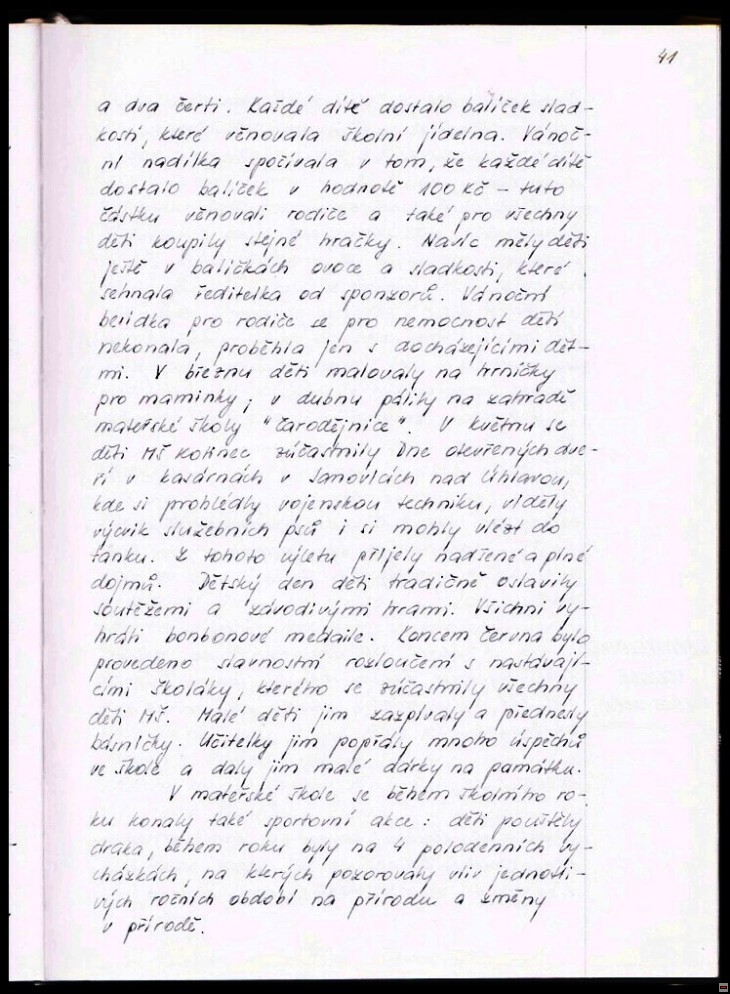 41
a dva čerti. Každé dítě dostalo balíček slad-
kostí, které věnovala školní jídelna. Vánoč-
ní nadílka spočívala v tom, že každé dítě
dostalo balíček v hodnotě 100 Kč – tuto
částku věnovali rodiče a také pro všechny
děti koupily stejné hračky. Navíc měly děti
ještě v balíčkách ovoce a sladkosti, které
sehnala ředitelka od sponzorů. Vánoční
besídka pro rodiče se pro nemocnost dětí
nekonala, proběhla jen s docházejícími dět-
mi. V březnu děti malovaly na hrníčky
pro maminky, v dubnu pálily na zahradě
mateřské školy "čarodějnice". V květnu se
děti MŠ Kolinec zúčastnily Dne otevřených dve-
ří v kasárnách v Janovicích nad Úhlavou,
kde si prohlédly vojenskou techniku, viděly
výcvik služebních psů i si mohly vlézt do
tanku. Z tohoto výletu přijely nadšené a plné
dojmů. Dětský den děti tradičně oslavily
soutěžemi a závodivými hrami. Všichni vy-
hráli bonbonové medaile. Koncem června bylo
provedeno slavnostní rozloučení s nastávají-
cími školáky, kterého se zúčastnily všechny
děti MŠ. Malé děti jim zazpívaly a přednesly
básničky. Učitelky jim popřály mnoho úspěchů
ve škole a daly jim malé dárky na památku.
V mateřské škole se během školního ro-
ku konaly také sportovní akce: děti pouštěly
draka, během roku byly na 4 polodenních vy-
cházkách, na kterých pozorovaly vliv jednotli-
vých ročních období na přírodu a změny
v přírodě.